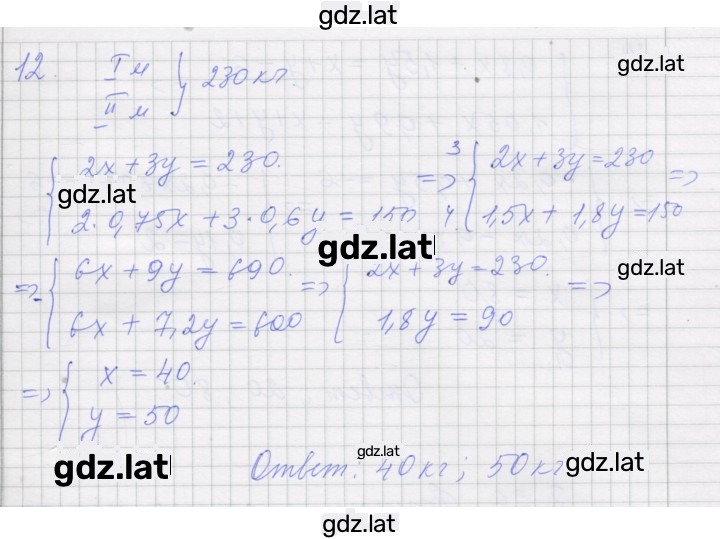 gdz.lat
12. I м
II м } 230 кг.
gdz.lat
{ 2x + 3y = 230.
2·0,75x + 3·0,6y = 150
=> 3 { 2x + 3y = 230
4 1,5x + 1,8y = 150 =>
gdz.lat
gdz.lat
=> { 6x + 9y = 690.
6x + 7,2y = 600
=> { 2x + 3y = 230.
1,8y = 90 =>
gdz.lat
=> { x = 40.
y = 50
gdz.lat
Ответ: 40 кг; 50 кг
gdz.lat
gdz.lat
gdz.lat